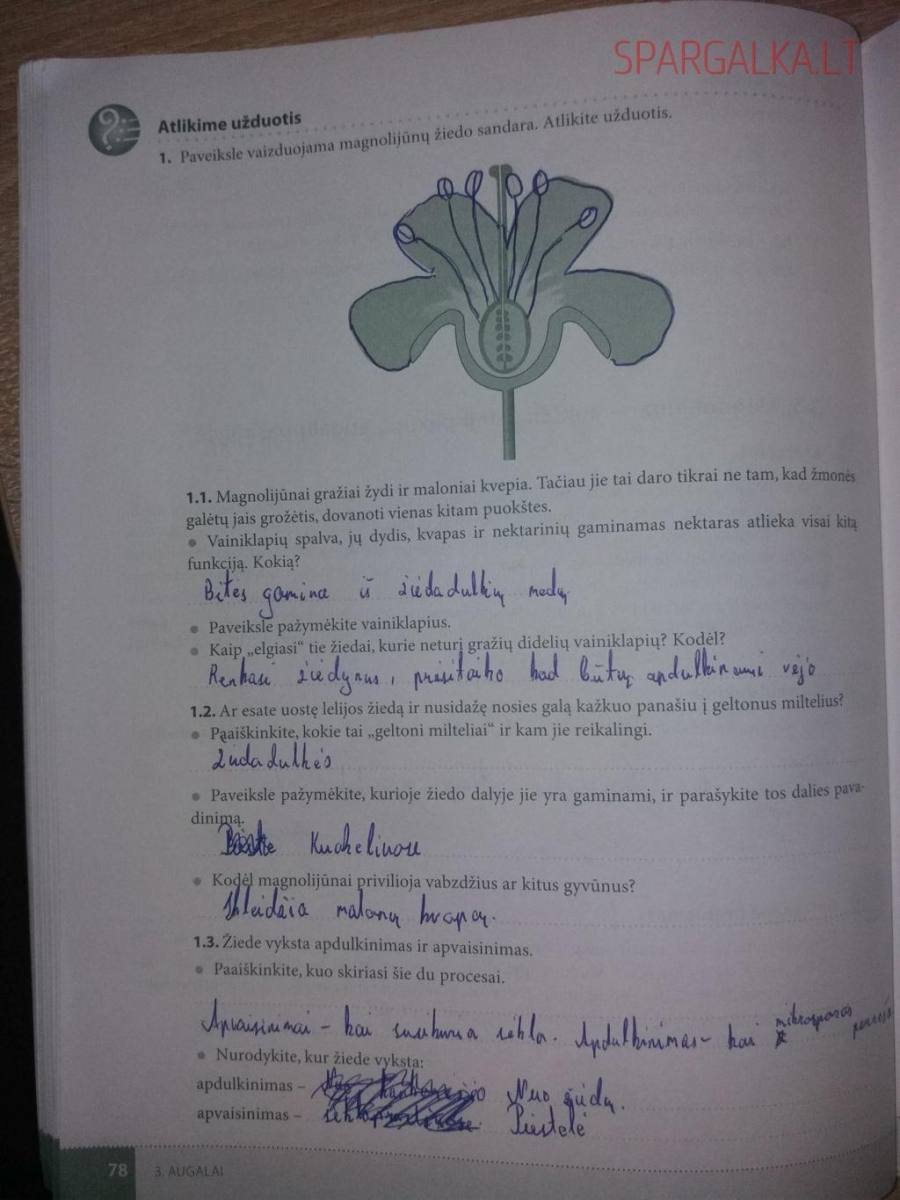 SPARGALKA.LT
Atlikime užduotis
1. Paveiksle vaizduojama magnolijūnų žiedo sandara. Atlikite užduotis.
1.1. Magnolijūnai gražiai žydi ir maloniai kvepia. Tačiau jie tai daro tikrai ne tam, kad žmonės
galėtų jais grožėtis, dovanoti vienas kitam puokštes.
• Vainiklapių spalva, jų dydis, kvapas ir nektarinių gaminamas nektaras atlieka visai kitą
funkciją. Kokią?
Bitės gamina iš žiedadulkių medų
• Paveiksle pažymėkite vainiklapius.
• Kaip „elgiasi“ tie žiedai, kurie neturi gražių didelių vainiklapių? Kodėl?
Renkasi žiedynus, prisitaiko kad būtų apdulkinami vėjo
1.2. Ar esate uostę lelijos žiedą ir nusidažę nosies galą kažkuo panašiu į geltonus miltelius?
• Paaiškinkite, kokie tai „geltoni milteliai“ ir kam jie reikalingi.
žiedadulkės
• Paveiksle pažymėkite, kurioje žiedo dalyje jie yra gaminami, ir parašykite tos dalies pava-
dinimą.
Kuokelinose
• Kodėl magnolijūnai privilioja vabzdžius ar kitus gyvūnus?
Skleidžia malonų kvapą.
1.3. Žiede vyksta apdulkinimas ir apvaisinimas.
• Paaiškinkite, kuo skiriasi šie du procesai.
Apvaisinimai – kai susikuria sėkla. Apdulkinimas – kai mikrosporos
• Nurodykite, kur žiede vyksta:
apdulkinimas – Nuo
apvaisinimas – Piestelė
78 3. AUGALAI